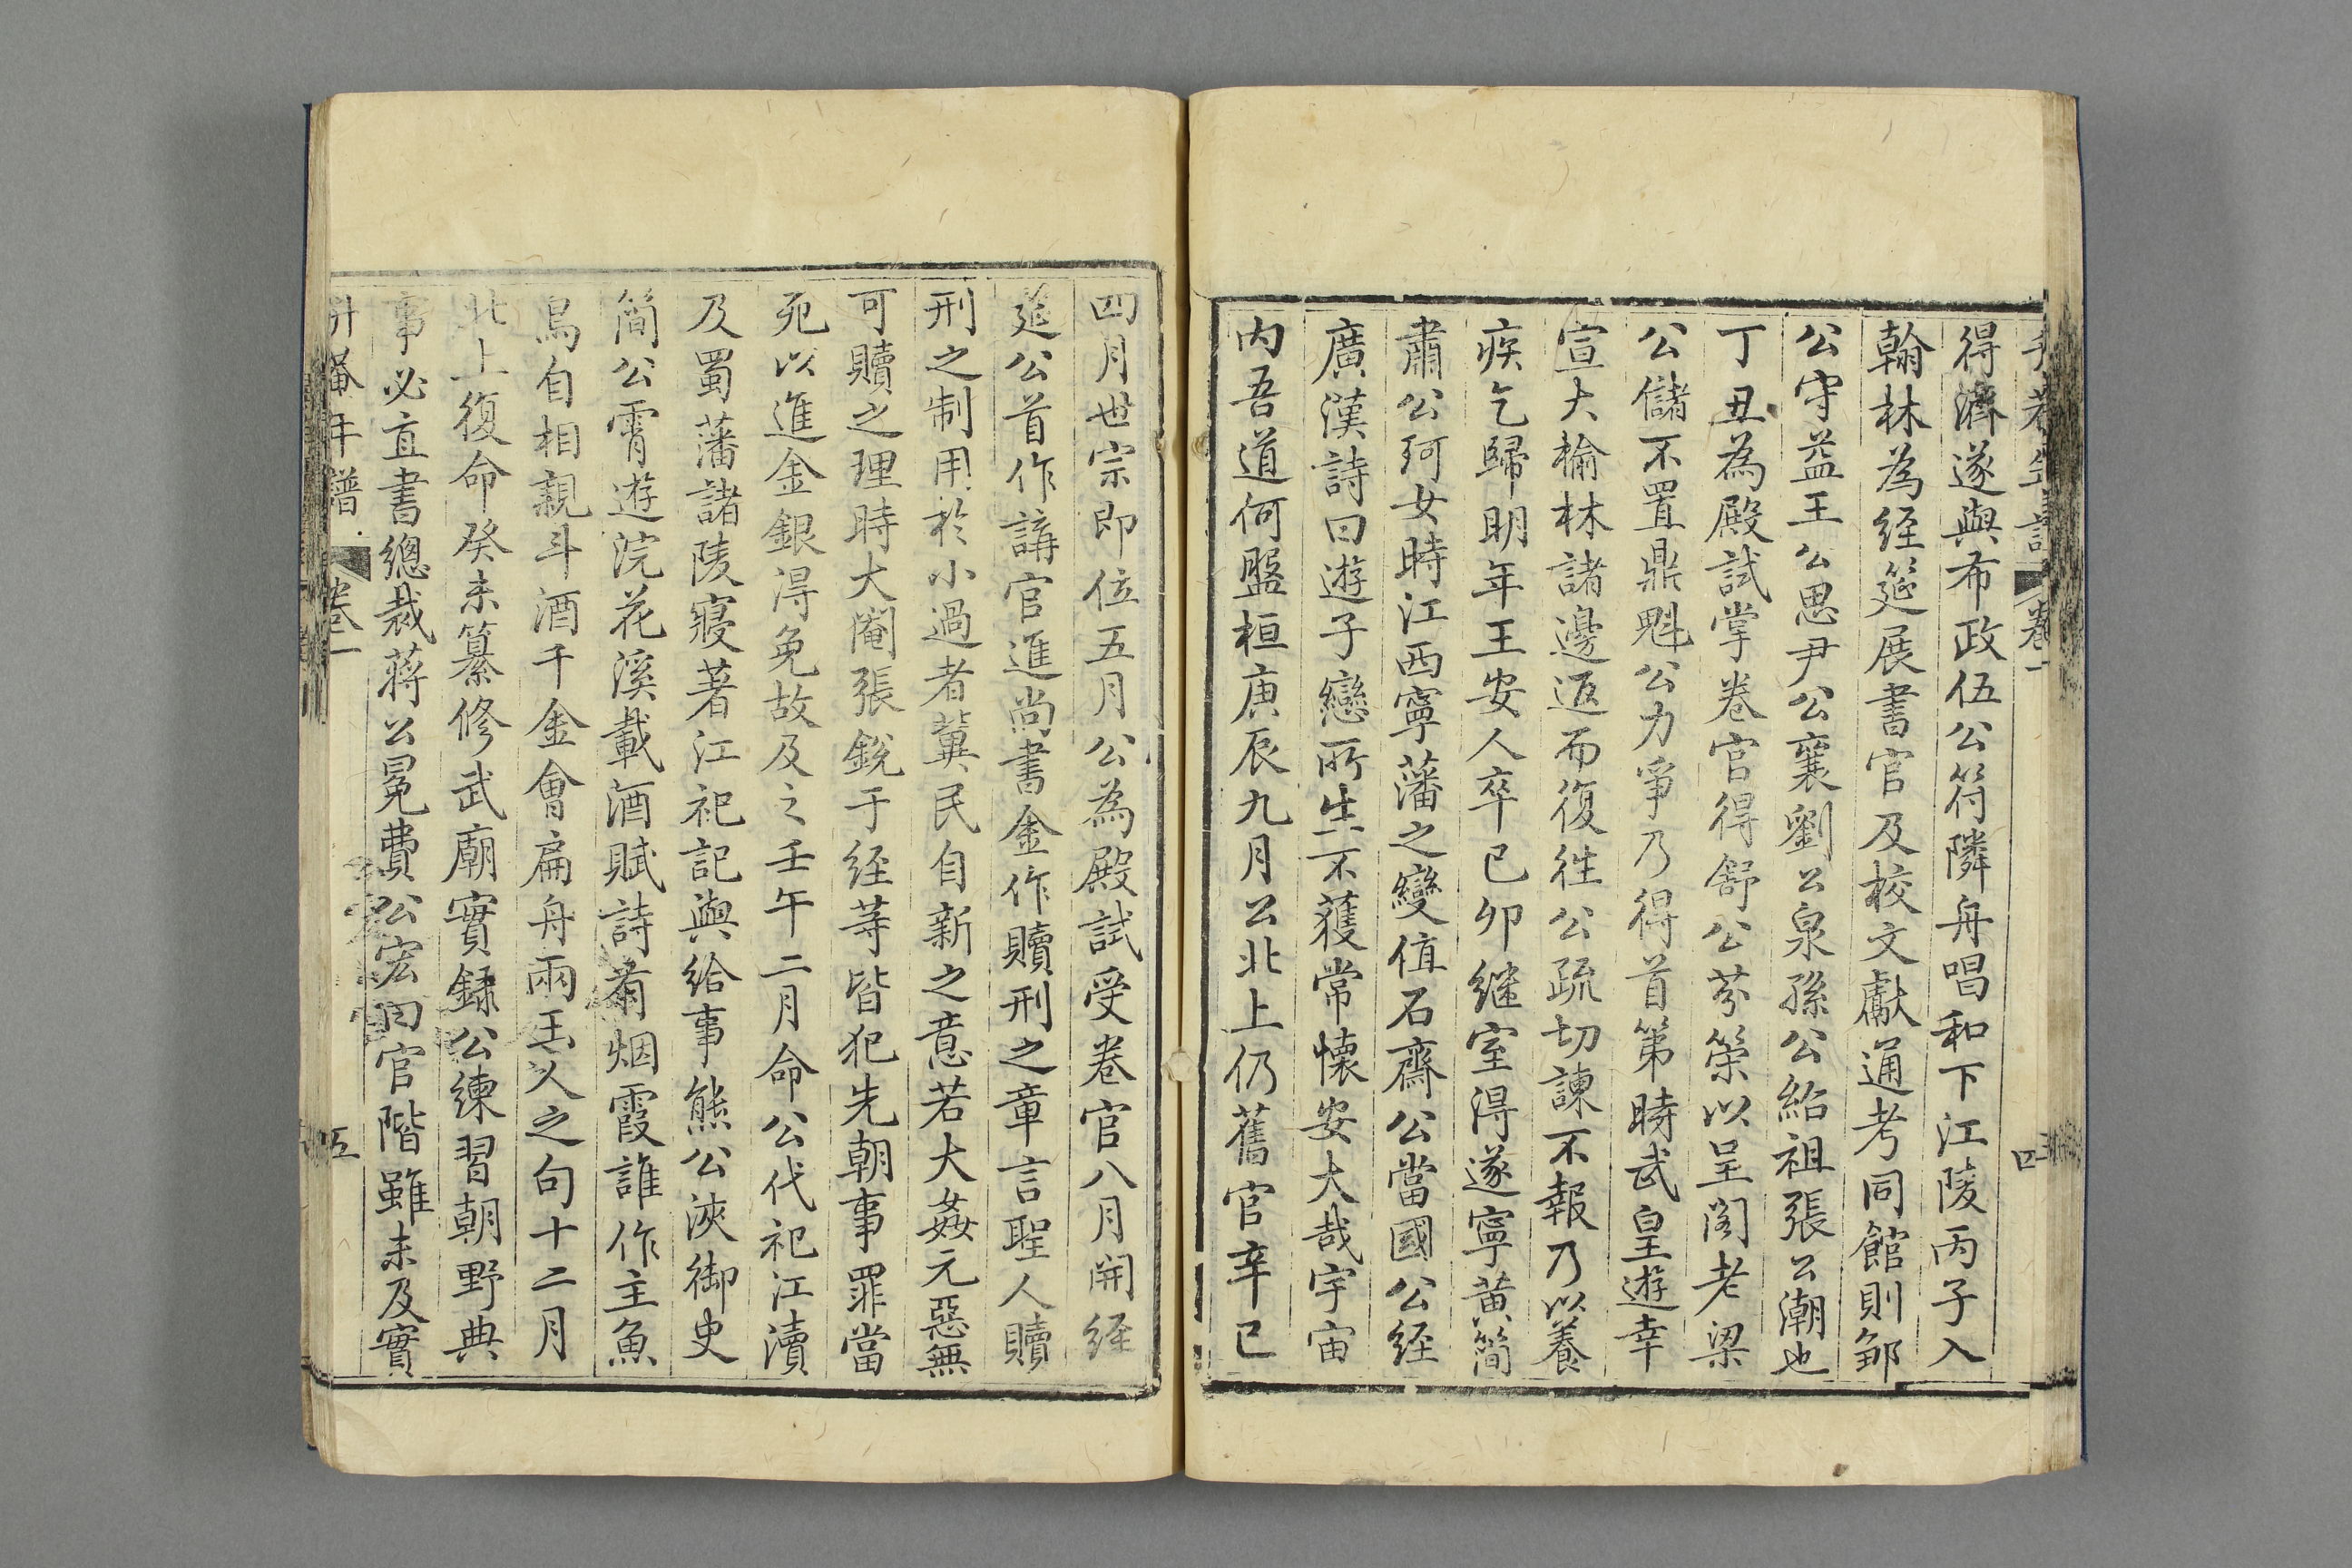 得濟遂與布政伍公符隣舟唱和下江陵丙子入
翰林為経筵展書官及校文獻通考同館則鄒
公守益王公思尹公襄劉公泉孫公紹祖張公潮也
丁丑為殿試掌卷官得舒公芬策以呈阁老梁
公儲不置鼎魁公力爭乃得首第時武皇遊幸
宣大榆林諸邊返而復徃公疏切諫不報乃以養
疾乞歸明年王安人卒已卯继室得遂寧黄簡
肅公珂女時江西寧藩之變值石齋公當國公経
廣漢詩曰遊子戀所生不獲常懐安大哉宇宙
内吾道何盤桓庚辰九月公北上仍舊官辛已
卷一
四
四月世宗即位五月公為殿試受卷官八月開経
筵公首作講官進尚書金作贖刑之章言聖人贖
刑之制用於小過者冀民自新之意若大姦元惡無
可贖之理時大閹張銳于经等皆犯先朝事罪當
死以進金銀得免故及之壬午二月命公代祀江瀆
及蜀藩諸陵寢著江祀記與給事熊公浹御史
簡公霄遊浣花溪載酒賦詩有烟霞誰作主魚
鳥自相親斗酒千金會扁舟兩玉人之句十二月
北上復命癸未纂修武廟實録公練習朝野典
事必直書總裁蒋公冕費公宏曰官階雖未及實
升菴年譜 卷一
五